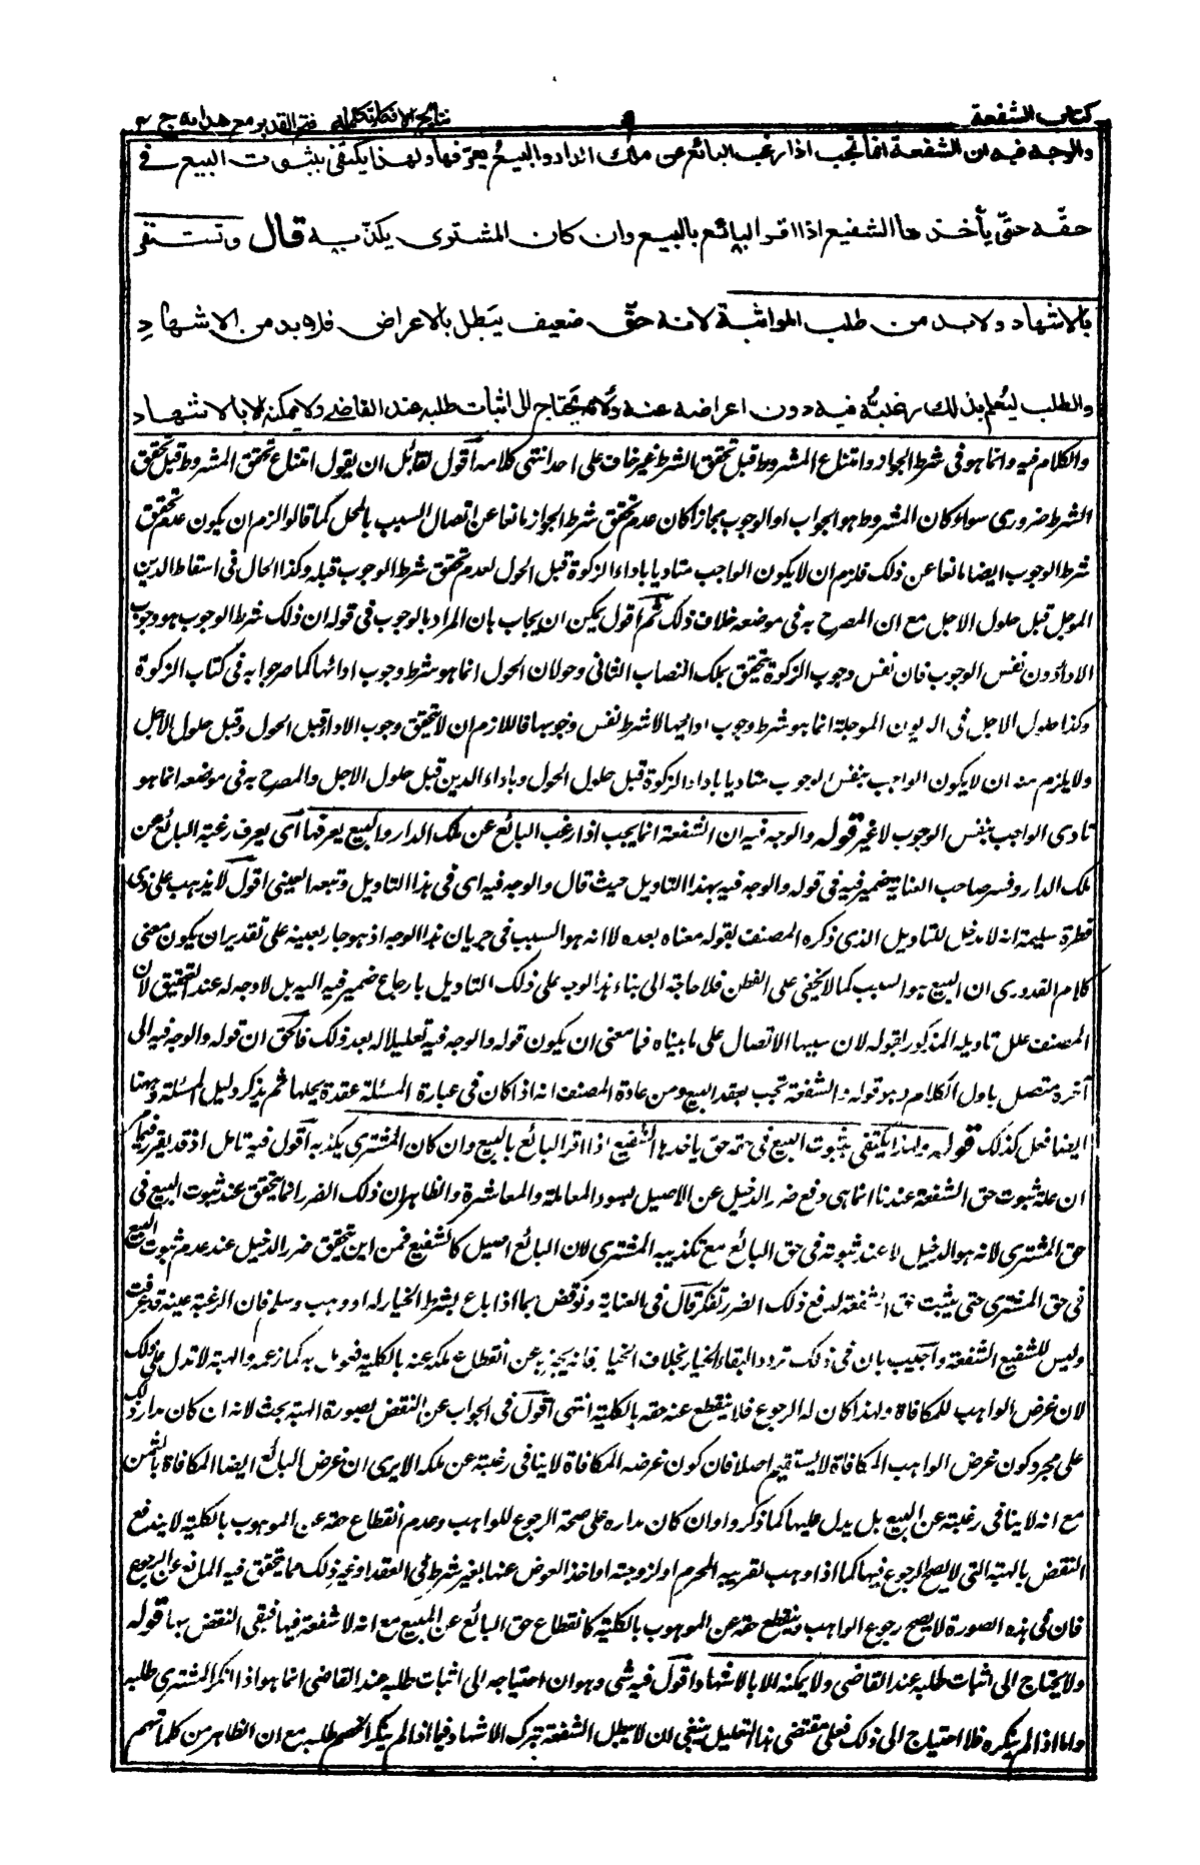 كتاب الشفعة
٩
نتائج الافكار تكمله فتح القدير مع هدايه ج ٨
والوجه فيه ان الشفعة انما تجب اذا رغب البائع عن ملك الدار والبيع يعرّفها ولهذا يكتفى بثبوت البيع فى
حقّه حتّى يأخذها الشفيع اذا اقر البائع بالبيع وان كان المشترى يكذّبه قال وتستقر
بالاشهاد ولابد من طلب المواثبة لانه حقّ ضعيف يبطل بالاعراض فلا بد من الاشهاد
والطلب ليُعلم بذلك رغبتُه فيه دون اعراضه عنه ولانه يحتاج الى اثبات طلبه عند القاضى ولا يمكنه الا بالاشهاد
والكلام فيه وانما هو فى شرط الجواز وامتناع المشروط قبل تحقق الشرط غير خاف على احد انتهى كلامه اقول لقائل ان يقول امتناع تحقق المشروط قبل تحقق
الشرط ضرورى سواء كان المشروط هو الجواب او الوجوب مجازا كان عدم تحقق شرط الجواز مانعا عن اتصال السبب بالمحل كما قالوا لزم ان يكون عدم تحقق
شرط الوجوب ايضا مانعا عن ذلك فلزم ان لا يكون الواجب متاديا باداء الزكوة قبل الحول لعدم تحقق شرط الوجوب قبله وكذا الحال فى اسقاط الدين
الموجل قبل حلول الاجل مع ان المصرح به فى موضعه خلاف ذلك ثم اقول يمكن ان يجاب بان المراد بالوجوب فى قوله ان ذلك شرط الوجوب هو وجوب
الاداء دون نفس الوجوب فان نفس وجوب الزكوة يتحقق بملك النصاب الثانى وحولان الحول انما هو شرط وجوب ادائها كما صرحوا به فى كتاب الزكوة
وكذا حلول الاجل فى الديون الموجلة انما هو شرط وجوب ادائها لا شرط نفس وجوبها فاللازم ان لا يتحقق وجوب الاداء قبل الحول وقبل حلول الاجل
ولا يلزم منه ان لا يكون الواجب بنفس الوجوب متاديا باداء الزكوة قبل حلول الحول وباداء الدين قبل حلول الاجل والمصرح به فى موضعه انما هو
تادى الواجب بنفس الوجوب لا غير قوله والوجه فيه ان الشفعة انما يجب اذا رغب البائع عن ملك الدار والبيع يعرفها اى يعرف رغبة البائع عن
ملك الدار وفسر صاحب العناية ضمير فيه فى قوله والوجه فيه بهذا التاويل حيث قال والوجه فيه اى فى هذا التاويل وتبعه العينى اقول لا يذهب على ذى
فطرة سليمة انه لا مدخل للتاويل الذى ذكره المصنف بقوله معناه بعده لا انه هو السبب فى جريان هذا الوجه اذ هو جار بعينه على تقدير ان يكون معنى
كلام القدورى ان البيع هو السبب كما لا يخفى على الفطن فلا حاجة الى بناء هذا الوجه على ذلك التاويل بارجاع ضمير فيه اليه بل لا وجه له عند التحقيق لان
المصنف علل تاويله المذكور بقوله لان سببها الاتصال على ما بيناه فما معنى ان يكون قوله والوجه فيه تعليلا له بعد ذلك فالحق ان قوله والوجه فيه الى
آخره متصل باول الكلام وهو قوله والشفعة تجب بعقد البيع ومن عادة المصنف انه اذا كان فى عبارة المسئلة عقدة يحلها ثم يذكر دليل المسئلة وههنا
ايضا فعل كذلك قوله ولهذا يكتفى بثبوت البيع فى حقه حتى ياخذها الشفيع اذا اقر البائع بالبيع وان كان المشترى يكذبه اقول فيه تامل اذ قد تقرر فيما مر
ان علة ثبوت حق الشفعة عندنا انما هى دفع ضرر الدخيل عن الاصيل لسوء المعاملة والمعاشرة والظاهر ان ذلك الضرر انما يتحقق عند ثبوت البيع فى
حق المشترى لانه هو الدخيل لا عند ثبوته فى حق البائع مع تكذيبه المشترى لان البائع اصيل كالشفيع فمن اين يتحقق ضرر الدخيل عند عدم ثبوت البيع
فى حق المشترى حتى يثبت حق الشفعة لدفع ذلك الضرر تفكر قال فى العناية ونوقض بما اذا باع بشرط الخيار له او وهب وسلم فان الرغبة عينه قد عرفت
وليس للشفيع الشفعة واجيب بان فى ذلك تردد البقاء الخيار بخلاف الخيار فانه يجزيه عن انقطاع ملكه عنه بالكلية فعومل به كما زعمه والهبة لا تدل على ذلك
لان غرض الواهب المكافاة ولهذا كان له الرجوع فلا ينقطع عنه حقه بالكلية انتهى اقول فى الجواب عن النقض بصورة الهبة بحث لانه ان كان مدار ذلك
على مجرد كون غرض الواهب المكافاة لا يستقيم اصلا فان كون غرضه المكافاة لا ينافى رغبته عن ملكه الا يرى ان غرض البائع ايضا المكافاة بالثمن
مع انه لا ينافى رغبته عن البيع بل يدل عليها كما ذكروا وان كان مداره على صحة الرجوع للواهب وعدم انقطاع حقه عن الموهوب بالكلية لا يندفع
النقض بالهبة التى لا يصح الرجوع فيها كما اذا وهب لقريبه المحرم او لزوجته او اخذ العوض عنها بغير شرط فى العقد او غير ذلك مما يتحقق فيه المانع عن الرجوع
فان فى هذه الصورة لا يصح رجوع الواهب وينقطع حقه عن الموهوب بالكلية كانقطاع حق البائع عن المبيع مع انه لا شفعة فيها فبقى النقض بها قوله
ولا يحتاج الى اثبات طلبه عند القاضى ولا يمكنه الا بالاشهاد اقول فيه شى وهو ان احتياجه الى اثبات طلبه عند القاضى انما هو اذا انكر المشترى طلبه
واما اذا لم ينكره فلا احتياج الى ذلك فعلى مقتضى هذا التعليل ينبغى ان لا يبطل الشفعة بترك الاشهاد فيما اذا لم ينكر الخصم طلبه مع ان الظاهر من كلماتهم